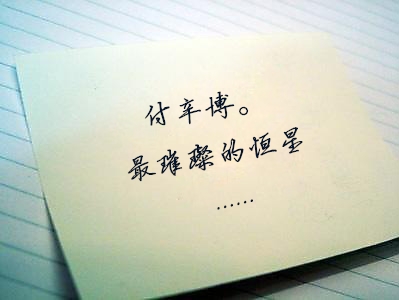 付辛博。
最璀璨的恒星
……